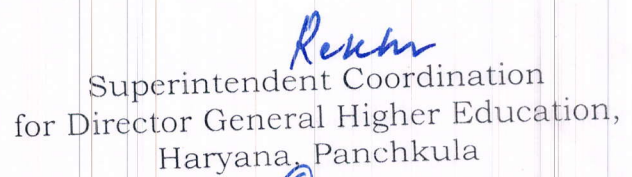 Rekha
Superintendent Coordination
for Director General Higher Education,
Haryana, Panchkula